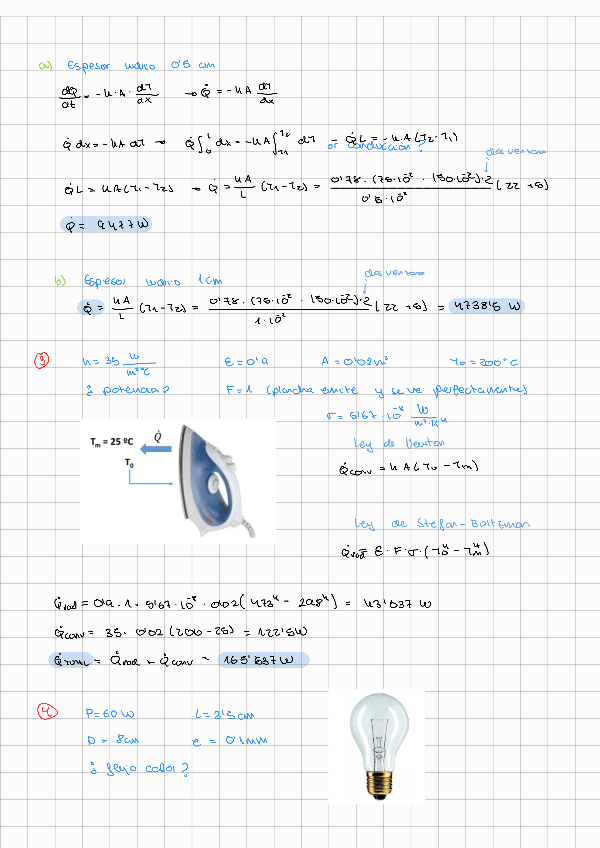 a) Espesor vidrio 0'5 cm
dQ/dt = -k·A· dT/dx → Q̇ = -kA dT/dx
Q̇ dx = -kA dT → Q̇ ∫₀ᴸ dx = -kA ∫ᴛ₁ᵀ² dT → Q̇L = -k·A(T2-T1)
or conducción?
dos ventanas
Q̇L = kA(T1-T2) → Q̇ = kA/L (T1-T2) = 0'78·(75·10⁻² · 150·10⁻²)·2 / 0'5·10⁻² (22 +5)
Q̇ = 9477 W
b) Espesor vidrio 1cm
dos ventanas
Q̇ = kA/L (T1-T2) = 0'78·(75·10⁻² · 150·10⁻²)·2 / 1·10⁻² (22 +5) = 4738'5 W
3 h = 35 W/m²ºC E = 0'9 A = 0'02m² T0 = 200°C
¿ potencia? F = 1 (plancha emite y se ve perfectamente)
σ = 5'67·10⁻⁸ W/m²·K⁴
Tm = 25 ºC Q̇
T0
Ley de Newton
Q̇conv = hA(T0 - Tm)
Ley de Stefan-Boltzman
Q̇rad = E·F·σ·(T0⁴ - Tm⁴)
Q̇rad = 0'9·1·5'67·10⁻⁸ · 0'02 (473⁴ - 298⁴) = 43'037 W
Q̇conv = 35· 0'02 (200-25) = 122'5W
Q̇total = Q̇rad + Q̇conv =
4 P = 60 W L = 2'5 cm
D = 8cm e = 0'1mm
¿ flujo calor?